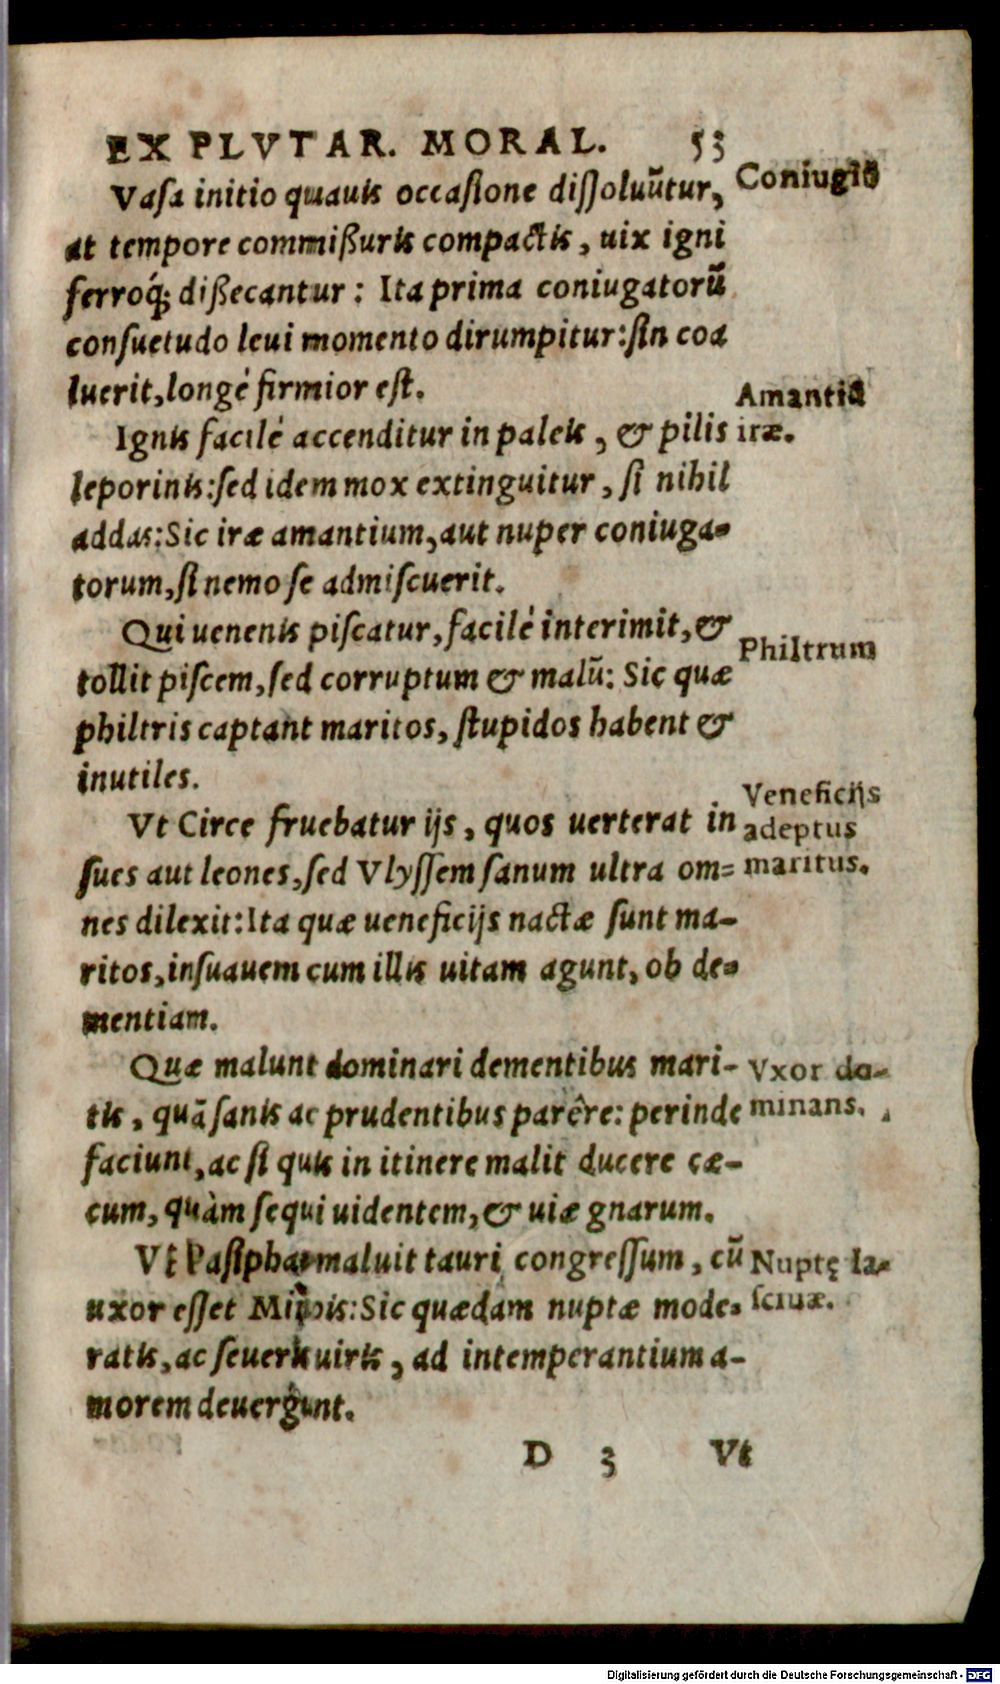 EX PLVTAR. MORAL. 53
Vaſa initio quauis occaſione diſſoluũtur, Coniugiũ
at tempore commißuris compactis, uix igni
ferroq́; dißecantur: Ita prima coniugatorũ
conſuetudo leui momento dirumpitur: ſin coa
luerit, longé firmior eſt.
Amantiũ
Ignis facilé accenditur in paleis, & pilis iræ.
leporinis: ſed idem mox extinguitur, ſi nihil
addas: Sic iræ amantium, aut nuper coniuga-
torum, ſi nemo ſe admiſcuerit.
Qui uenenis piſcatur, facilé interimit, &
Philtrum
tollit piſcem, ſed corruptum & malũ: Sic quæ
philtris captant maritos, ſtupidos habent &
inutiles.
Veneficijs
Vt Circe fruebatur ijs, quos uerterat in adeptus
ſues aut leones, ſed Vlyſſem ſanum ultra om= maritus.
nes dilexit: Ita quæ ueneficijs nactæ ſunt ma-
ritos, inſuauem cum illis uitam agunt, ob de-
mentiam.
Quæ malunt dominari dementibus mari- Vxor do-
tis, quã ſanis ac prudentibus parêre: perinde minans.
faciunt, ac ſi quis in itinere malit ducere cæ-
cum, quàm ſequi uidentem, & uiæ gnarum.
Vt Paſiphae maluit tauri congreſſum, cũ Nuptę la-
uxor eſſet Minois: Sic quædam nuptæ mode- ſciuæ.
ratis, ac ſeueris uiris, ad intemperantium a-
morem deuergunt.
D 3 Vt
Digitalisierung gefördert durch die Deutsche Forschungsgemeinschaft - DFG